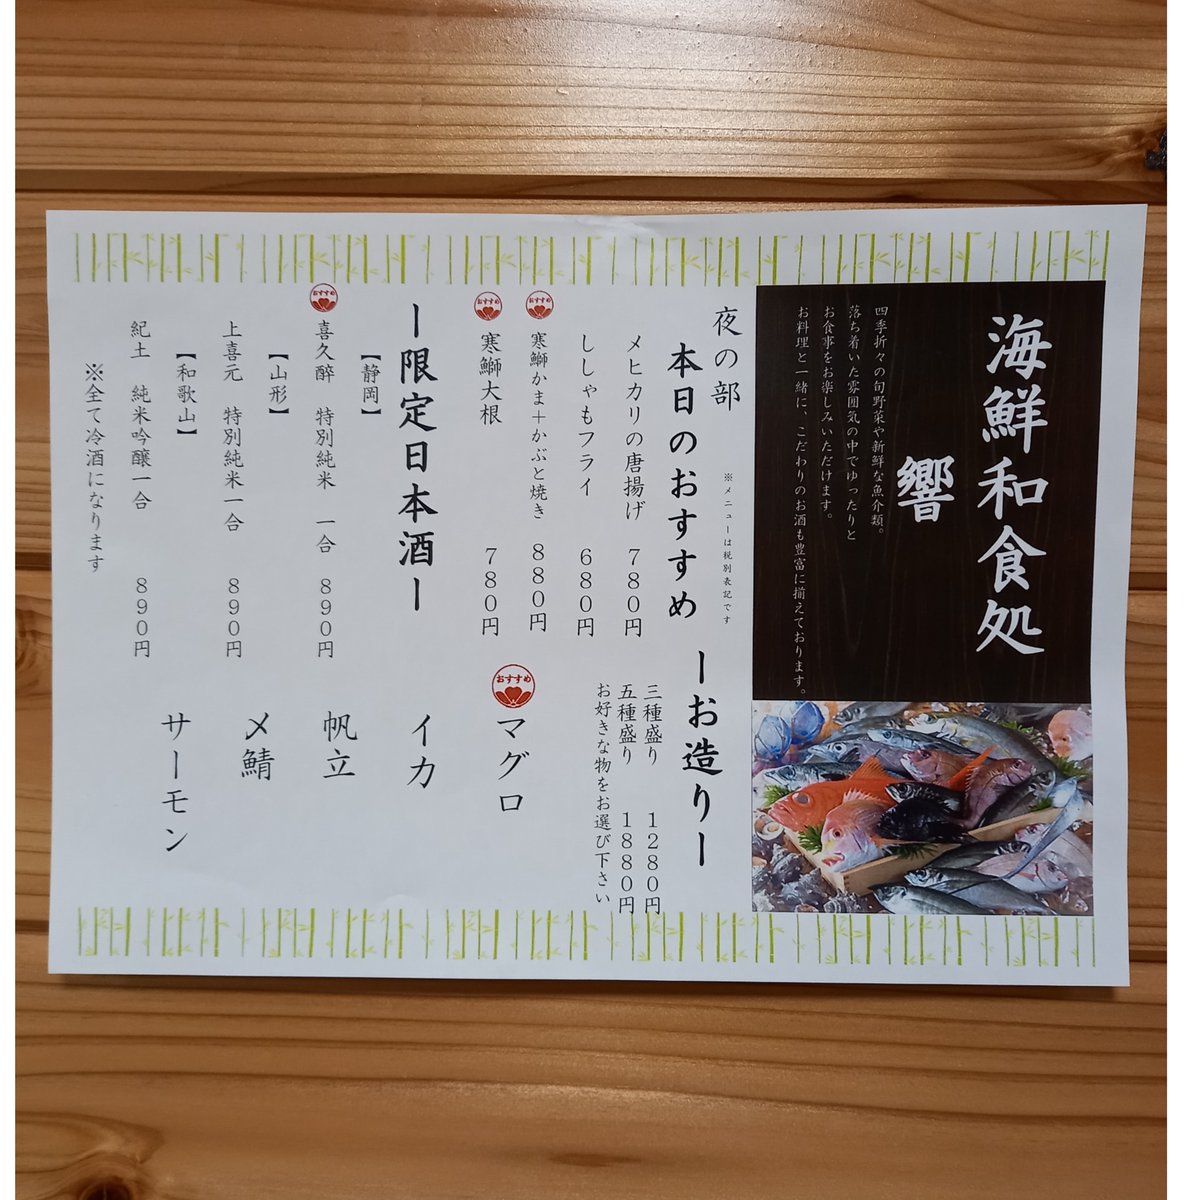 海鮮和食処
響
四季折々の旬野菜や新鮮な魚介類。
落ち着いた雰囲気の中でゆったりと
お食事をお楽しみいただけます。
お料理と一緒に、こだわりのお酒も豊富に揃えております。
夜の部
※メニューは税別表記です
本日のおすすめ
メヒカリの唐揚げ 780円
ししゃもフライ 680円
おすすめ
寒鰤かま+かぶと焼き 880円
おすすめ
寒鰤大根 780円
ー限定日本酒ー
【静岡】
おすすめ
喜久醉 特別純米 一合 890円
【山形】
上喜元 特別純米一合 890円
【和歌山】
紀土 純米吟醸一合 890円
※全て冷酒になります
ーお造りー
三種盛り 1280円
五種盛り 1880円
お好きな物をお選び下さい
おすすめ
マグロ
イカ
帆立
〆鯖
サーモン